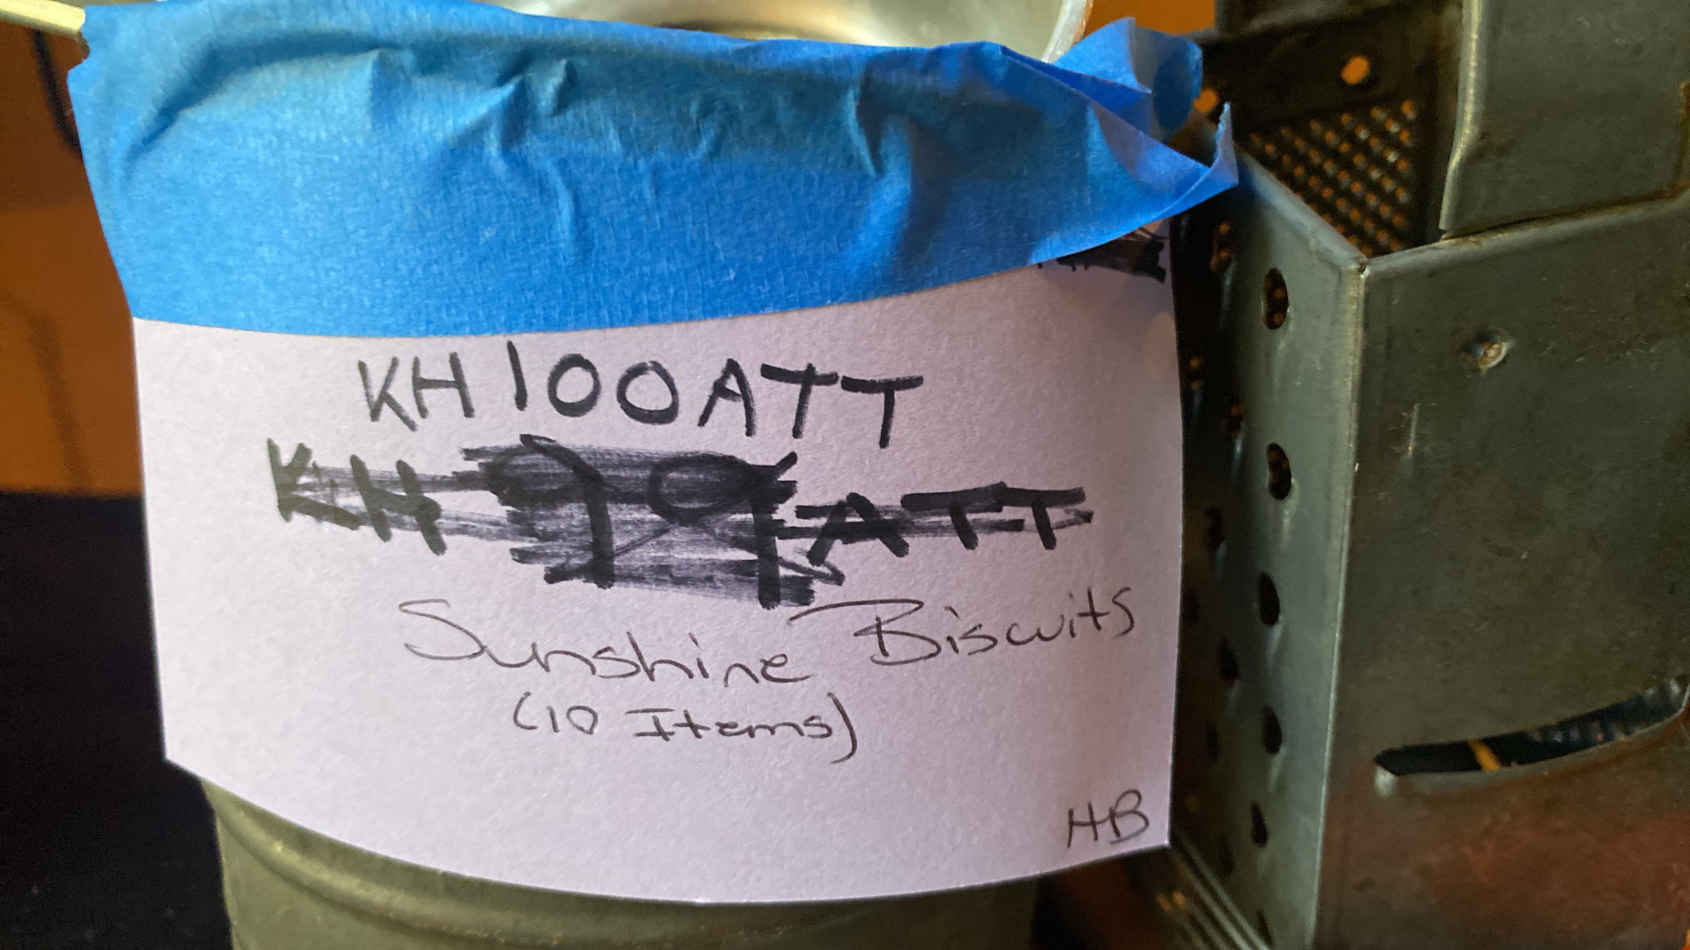 KH100ATT
KH99ATT
Sunshine Biscuits
(10 Items)
HB